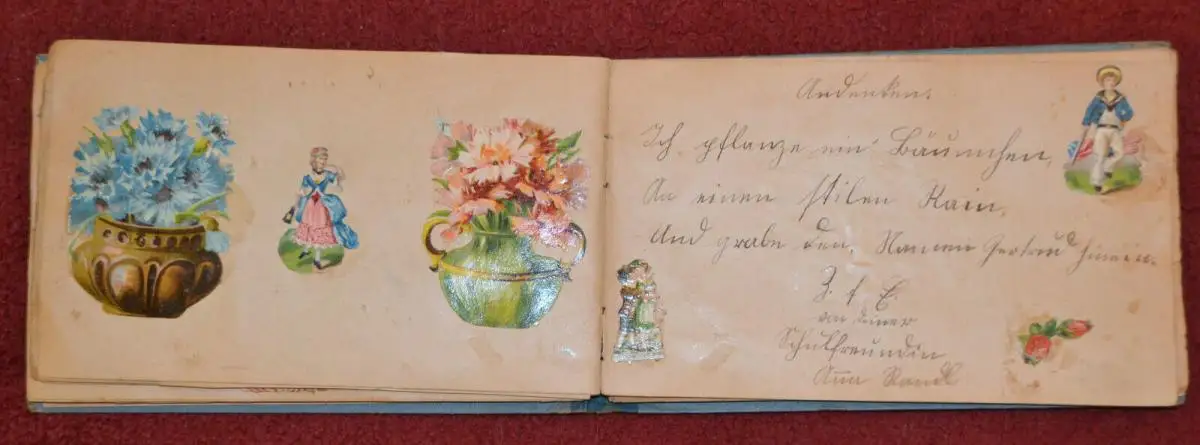 Andenken.
Ich pflanze ein Bäumchen,
An einen stilen Rain,
Und grabe den Namen Gertrud hinein.
Z. f. E.
von deiner
Schulfreundin
Anna Kandl